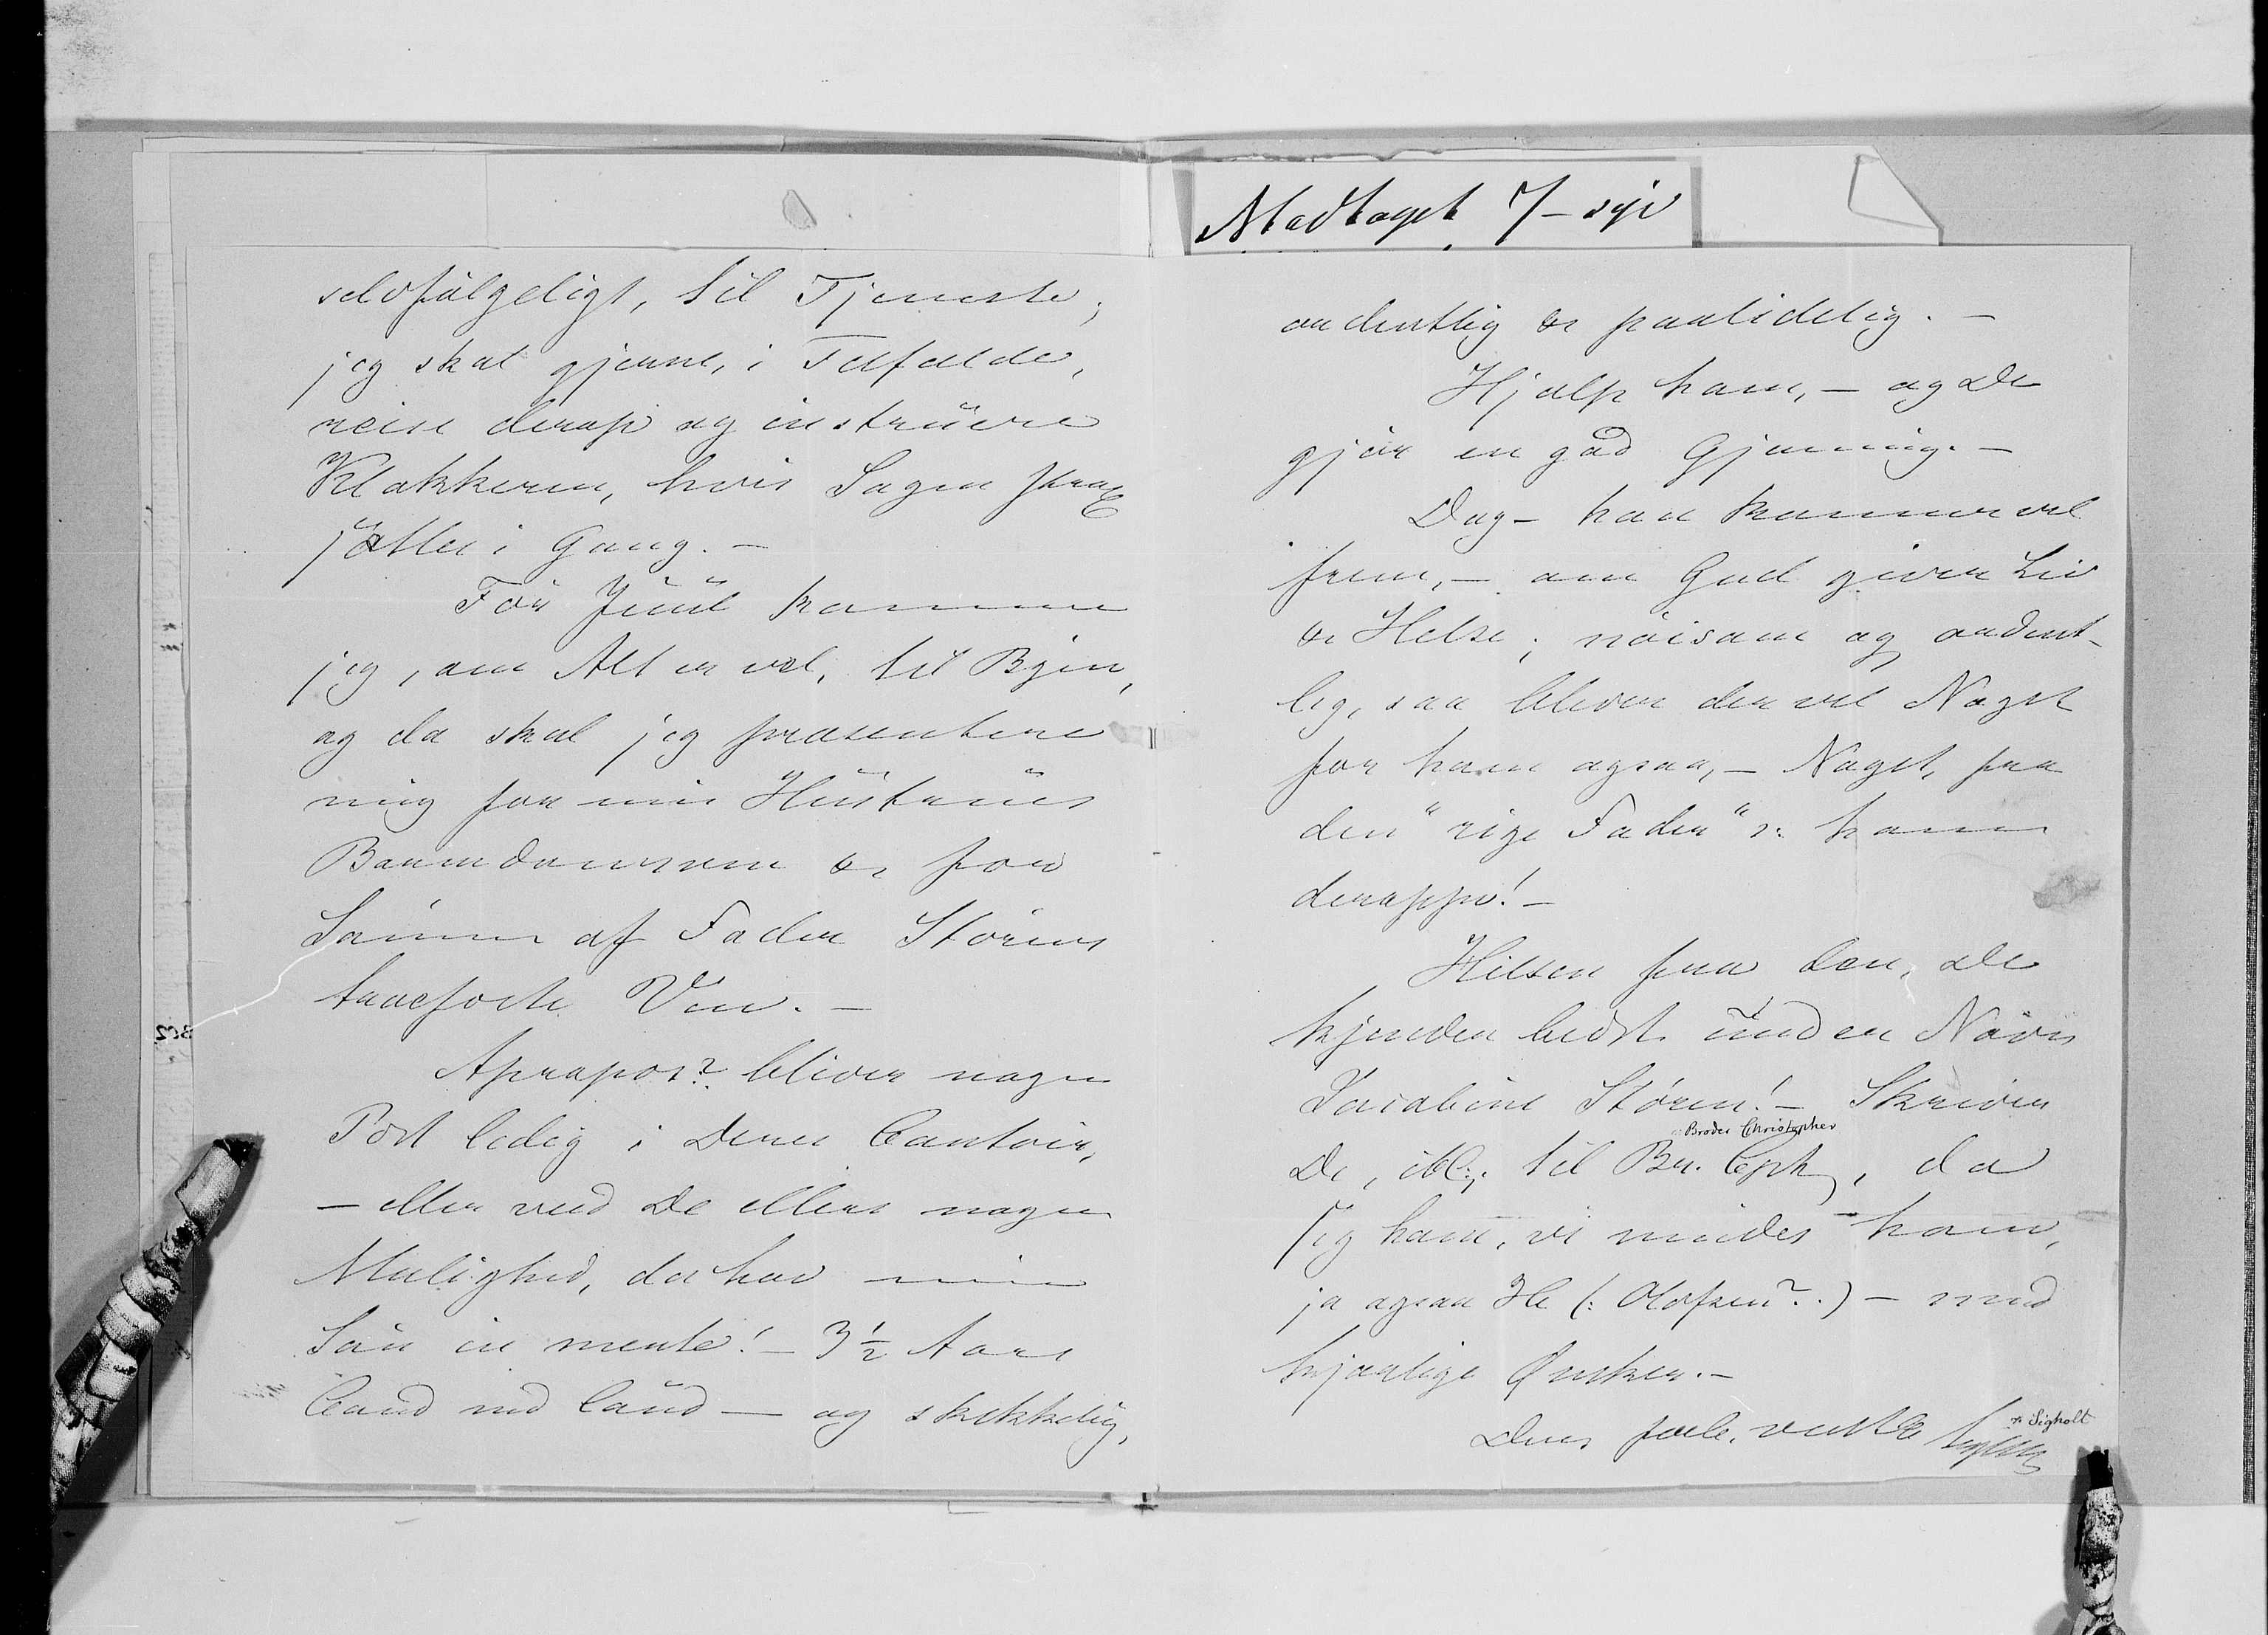 selvfølgeligt, til Tjeneste;
jeg skal gjerne, i Tilfælde,
reise derop og instruere
Klokkeren, hvis Sagen
sættes i Gang. –
Før Juul kommer
jeg, om Alt er vel, til Byen,
og da skal jeg præsentere
mig for min Hustrues
Barndomsven & for
Sønnen af Fader Størens
trofaste Ven. –
Apropos? bliver nogen
Post ledig i Deres Contoir,
– eller veed De ellers nogen
Mulighed, da hav min
Søn in mente! – 3½ Aars
Cand med laud – og skikkelig,
Modtaget 7 – syv
ordentlig & paalidelig. –
Hjælp ham, – og De
gjør en god Gjerning. –
Dog – han kommer vel
frem, – om Gud giver Liv
& Helse; nøisom og ordent-
lig, saa bliver der vel Noget
for ham ogsaa, – Noget, fra
den "rige Fader" ɔ: ham
deroppe! –
Hilsen fra den, De
kjender bedst under Navn
Jacobine Støren! – Skriver
Broder Christopher
De, til Br. Cph, da
sig ham, vi mindes ham,
ja ogsaa He (: Olofsen? :) – med
kjærlige Ønsker. –
Deres
ɔ: Sigholt